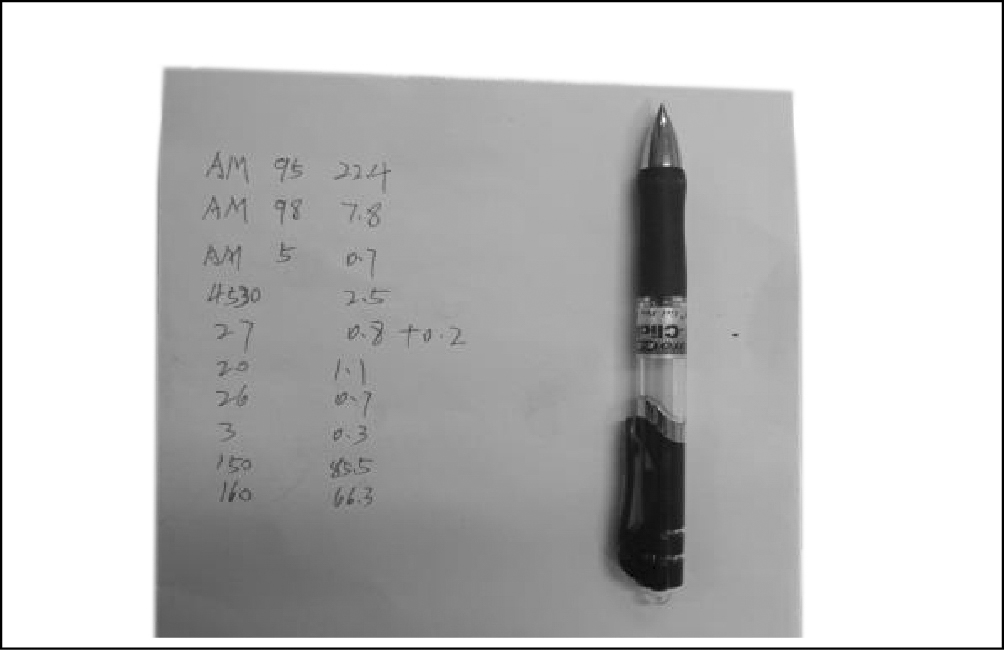 AM 95 22.4
AM 98 7.8
AM 5 0.7
4530 2.5
27 0.8 + 0.2
20 1.1
26 0.7
3 0.3
150 85.5
160 66.3
Clic